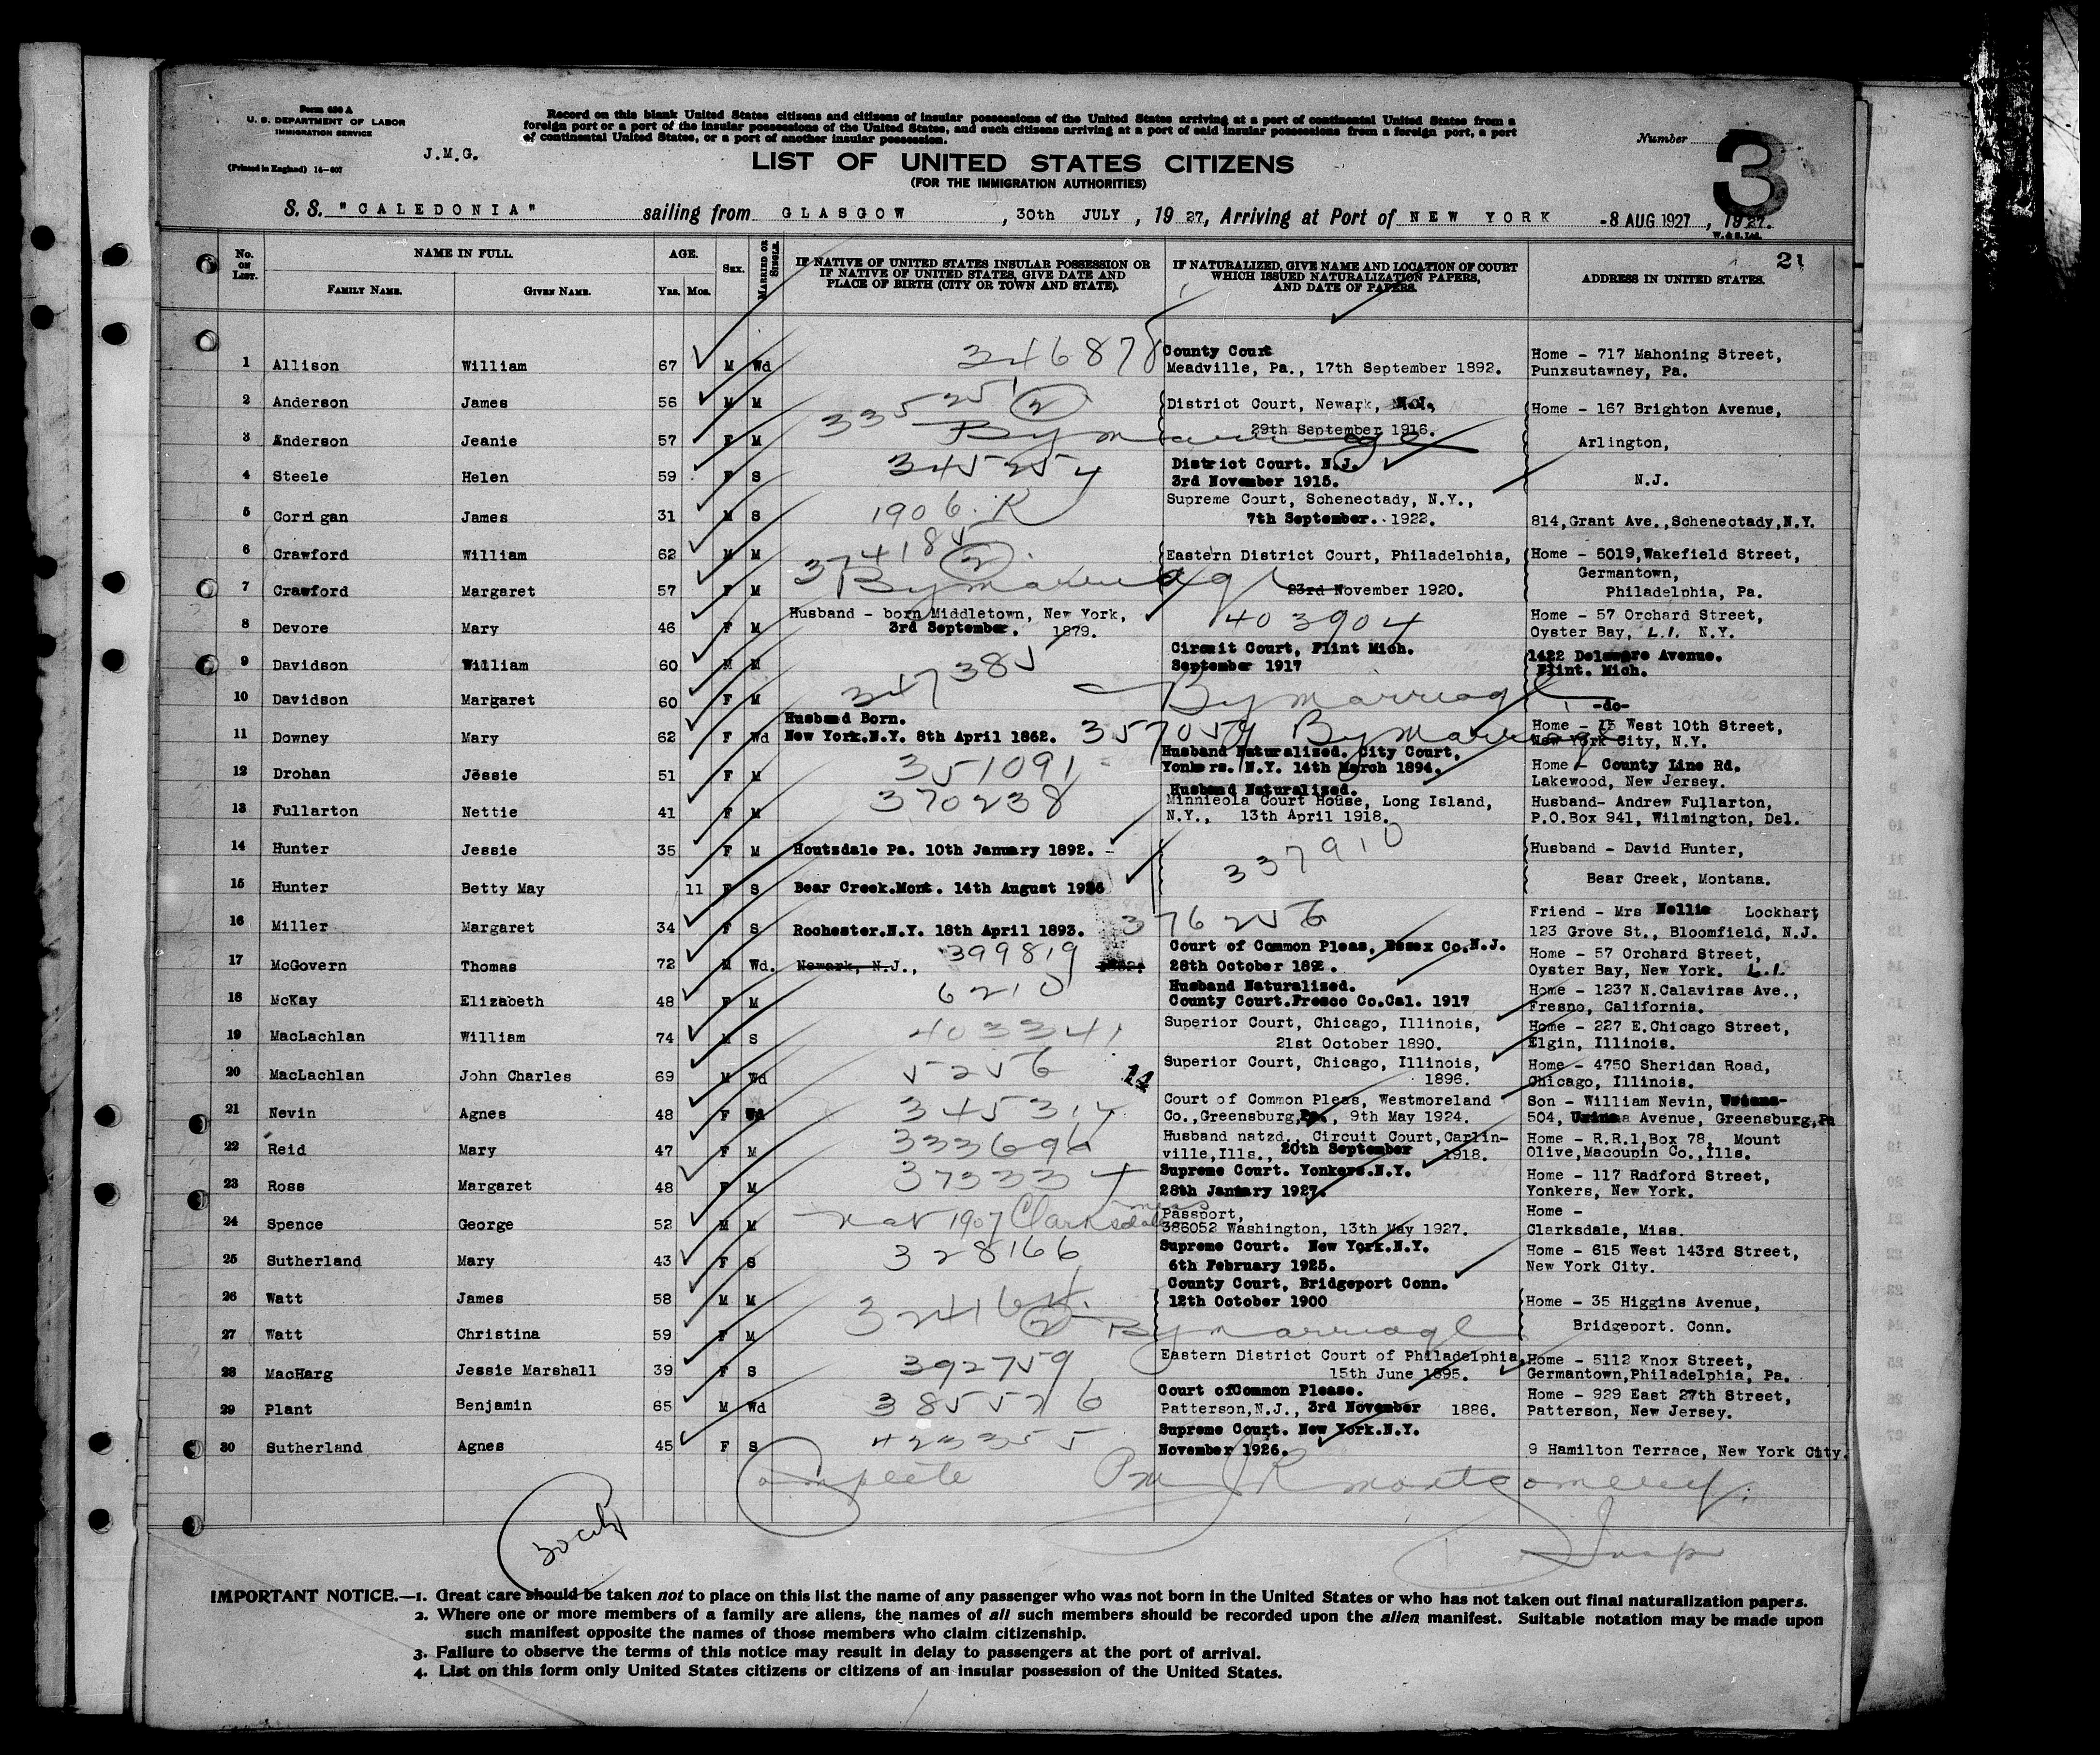 Form 630 A
U. S. DEPARTMENT OF LABOR
IMMIGRATION SERVICE
(Printed in England) 14-607
J.M.G.
Record on this blank United States citizens and citizens of insular possessions of the United States arriving at a port of continental United States from a
foreign port or a port of the insular possessions of the United States, and such citizens arriving at a port of said insular possessions from a foreign port, a port
of continental United States, or a port of another insular possession.
Number 3
LIST OF UNITED STATES CITIZENS
(FOR THE IMMIGRATION AUTHORITIES)
S. S. "CALEDONIA" sailing from GLASGOW, 30th JULY, 1927, Arriving at Port of NEW YORK -8 AUG 1927, 1927.
W. & S. Ltd.
21
No. ON LIST. NAME IN FULL. FAMILY NAME. GIVEN NAME. AGE. YRS. MOS. SEX. MARRIED OR SINGLE. IF NATIVE OF UNITED STATES INSULAR POSSESSION OR IF NATIVE OF UNITED STATES, GIVE DATE AND PLACE OF BIRTH (CITY OR TOWN AND STATE). IF NATURALIZED, GIVE NAME AND LOCATION OF COURT WHICH ISSUED NATURALIZATION PAPERS, AND DATE OF PAPERS. ADDRESS IN UNITED STATES.
1 Allison William 67 M Wd 346878 County Court Meadville, Pa., 17th September 1892. Home - 717 Mahoning Street, Punxsutawney, Pa.
2 Anderson James 56 M M 335251 (2) District Court, Newark, N.J. 29th September 1916. Home - 167 Brighton Avenue,
3 Anderson Jeanie 57 F M By marriage Arlington,
4 Steele Helen 59 F S 345254 District Court. N.J. 3rd November 1915. N.J.
5 Corrigan James 31 M S 1906.K Supreme Court, Schenectady, N.Y., 7th September. 1922. 814,Grant Ave.,Schenectady,N.Y.
6 Crawford William 62 M M 374185 (2) Eastern District Court, Philadelphia, Home - 5019,Wakefield Street,
7 Crawford Margaret 57 F M By marriage 23rd November 1920. Germantown, Philadelphia, Pa.
8 Devore Mary 46 F M Husband - born Middletown, New York, 3rd September. 1879. 403904 Home - 57 Orchard Street, Oyster Bay, L.I. N.Y.
9 Davidson William 60 M M 347385 Circuit Court, Flint Mich. September 1917 1422 Delaware Avenue. Flint. Mich.
10 Davidson Margaret 60 F M By marriage -do-
11 Downey Mary 62 F Wd Husband Born. New York.N.Y. 8th April 1862. 357059 By Marriage Home - 15 West 10th Street, New York City, N.Y.
12 Drohan Jessie 51 F M 351091 Husband Naturalized. City Court. Yonkers. N.Y. 14th March 1894. Home - County Line Rd. Lakewood, New Jersey.
13 Fullarton Nettie 41 F M 370238 Husband Naturalized. Minnieola Court House, Long Island, N.Y., 13th April 1918. Husband- Andrew Fullarton, P.O.Box 941, Wilmington, Del.
14 Hunter Jessie 35 F M Houtzdale Pa. 10th January 1892. Husband - David Hunter,
15 Hunter Betty May 11 F S Bear Creek.Mont. 14th August 1926 337910 Bear Creek, Montana.
16 Miller Margaret 34 F S Rochester.N.Y. 18th April 1893. 376256 Friend - Mrs Nellie Lockhart 123 Grove St., Bloomfield, N.J.
17 McGovern Thomas 72 M Wd. Newark, N.J., 399819 Court of Common Pleas, Essex Co.N.J. 28th October 1892. Home - 57 Orchard Street, Oyster Bay, New York. L.I.
18 McKay Elizabeth 48 F M 6210 Husband Naturalized. County Court.Fresco Co.Cal. 1917 Home - 1237 N.Calaviras Ave., Fresno, California.
19 MacLachlan William 74 M S 403341 Superior Court, Chicago, Illinois, 21st October 1890. Home - 227 E.Chicago Street, Elgin, Illinois.
20 MacLachlan John Charles 69 M Wd 5256 14 Superior Court, Chicago, Illinois, 1896. Home - 4750 Sheridan Road, Chicago, Illinois.
21 Nevin Agnes 48 F Wd 345314 Court of Common Pleas, Westmoreland Co.,Greensburg,Pa., 9th May 1924. Son - William Nevin, 504, Avenue, Greensburg,Pa
22 Reid Mary 47 F M 333694 Husband natzd., Circuit Court,Carlinville,Ills., 20th September 1918. Home - R.R.1,Box 78, Mount Olive,Macoupin Co.,Ills.
23 Ross Margaret 48 F M 373334 Supreme Court. Yonkers.N.Y. 28th January 1927. Home - 117 Radford Street, Yonkers, New York.
24 Spence George 52 M M nat 1907 Clarksdale miss Passport, 386052 Washington, 13th May 1927. Home - Clarksdale, Miss.
25 Sutherland Mary 43 F S 328166 Supreme Court. New York.N.Y. 6th February 1925. Home - 615 West 143rd Street, New York City.
26 Watt James 58 M M 324164 (2) County Court, Bridgeport Conn. 12th October 1900 Home - 35 Higgins Avenue,
27 Watt Christina 59 F M By marriage Bridgeport. Conn.
28 MacHarg Jessie Marshall 39 F S 392759 Eastern District Court of Philadelphia, 15th June 1895. Home - 5112 Knox Street, Germantown,Philadelphia, Pa.
29 Plant Benjamin 65 M Wd 385526 Court ofCommon Please. Patterson,N.J., 3rd November 1886. Home - 929 East 27th Street, Patterson, New Jersey.
30 Sutherland Agnes 45 F S 423355 Supreme Court. New York.N.Y. November 1926. 9 Hamilton Terrace, New York City.
Complete J R Montgomery.
Insp
IMPORTANT NOTICE.—1. Great care should be taken not to place on this list the name of any passenger who was not born in the United States or who has not taken out final naturalization papers.
2. Where one or more members of a family are aliens, the names of all such members should be recorded upon the alien manifest. Suitable notation may be made upon
such manifest opposite the names of those members who claim citizenship.
3. Failure to observe the terms of this notice may result in delay to passengers at the port of arrival.
4. List on this form only United States citizens or citizens of an insular possession of the United States.